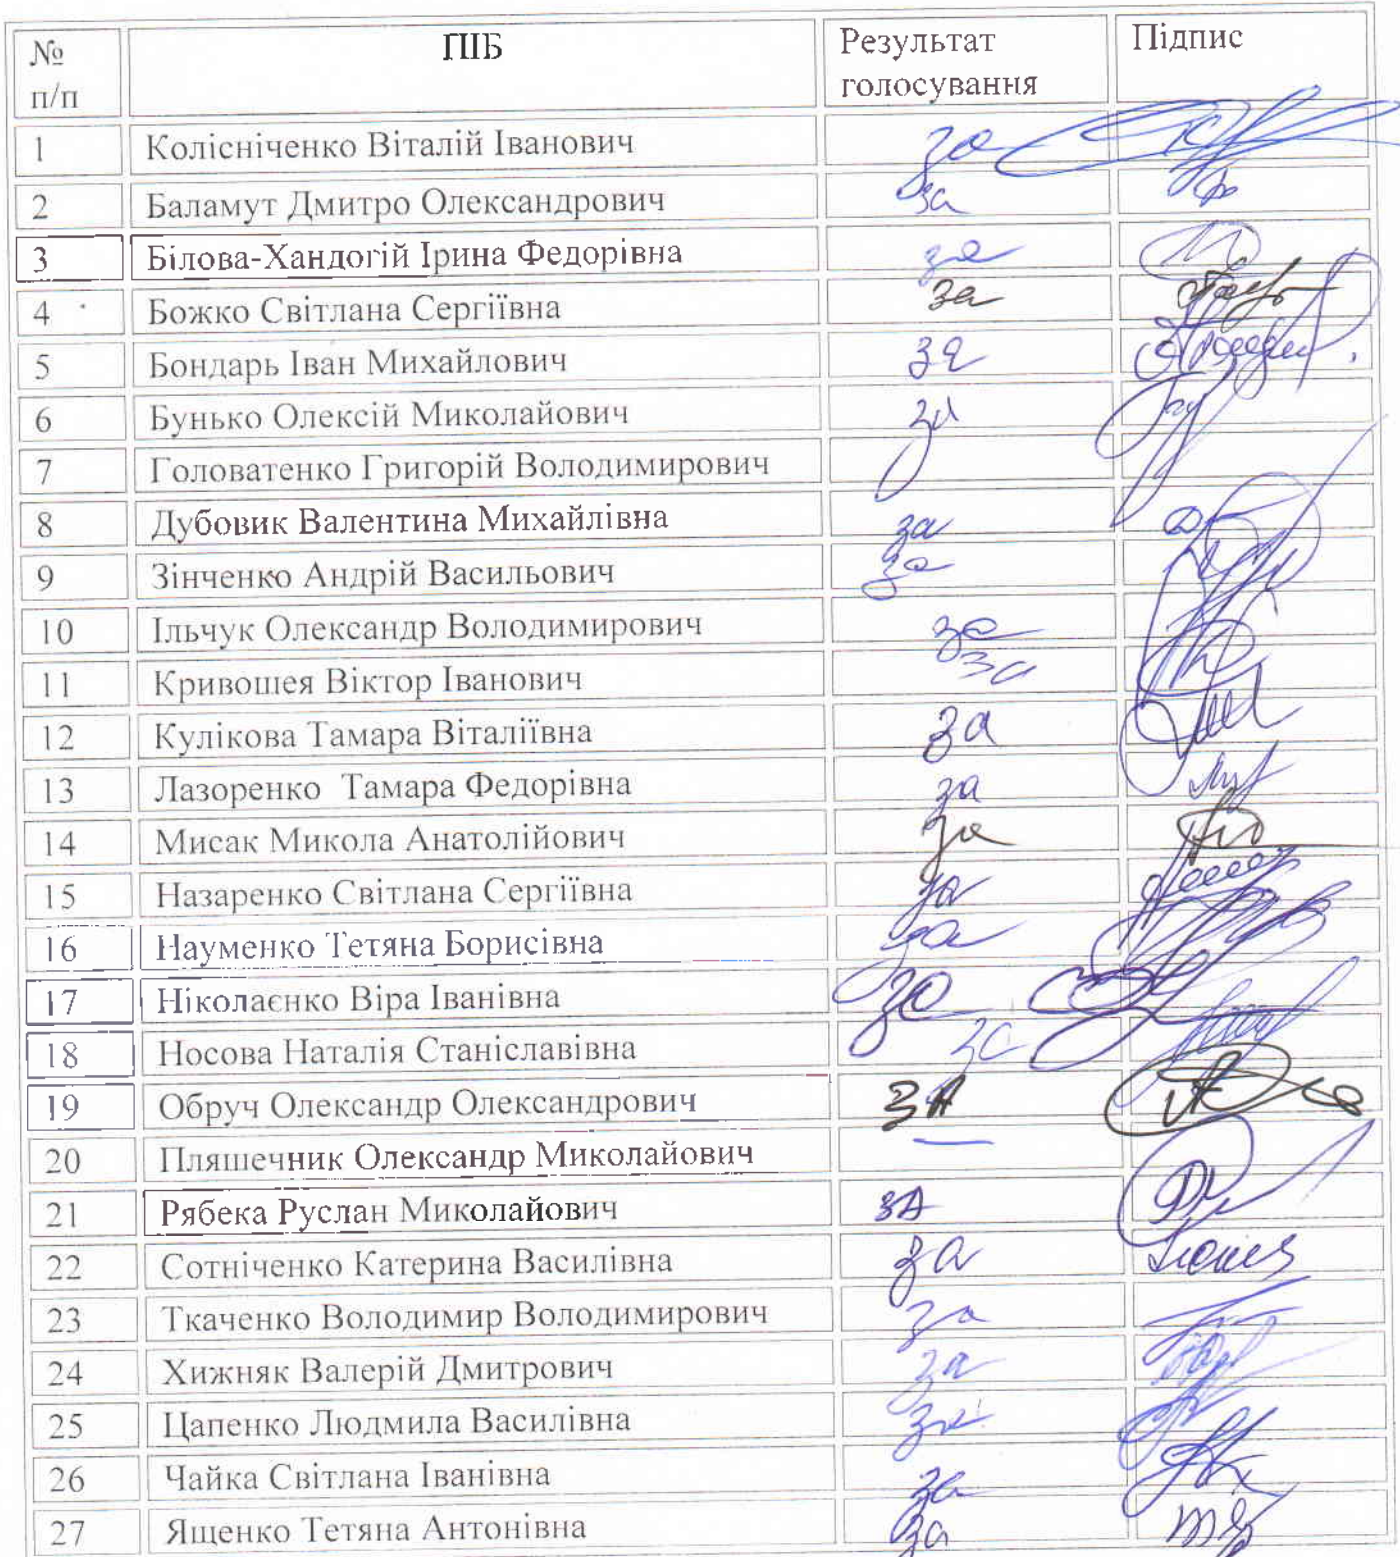 № п/п ПІБ Результат голосування Підпис
1 Колісніченко Віталій Іванович за
2 Баламут Дмитро Олександрович за
3 Білова-Хандогій Ірина Федорівна за
4 Божко Світлана Сергіївна за
5 Бондарь Іван Михайлович за
6 Бунько Олексій Миколайович за
7 Головатенко Григорій Володимирович
8 Дубовик Валентина Михайлівна за
9 Зінченко Андрій Васильович за
10 Ільчук Олександр Володимирович за
11 Кривошея Віктор Іванович за
12 Кулікова Тамара Віталіївна за
13 Лазоренко Тамара Федорівна за
14 Мисак Микола Анатолійович за
15 Назаренко Світлана Сергіївна за
16 Науменко Тетяна Борисівна за
17 Ніколаєнко Віра Іванівна за
18 Носова Наталія Станіславівна за
19 Обруч Олександр Олександрович зА
20 Пляшечник Олександр Миколайович —
21 Рябека Руслан Миколайович зА
22 Сотніченко Катерина Василівна за
23 Ткаченко Володимир Володимирович за
24 Хижняк Валерій Дмитрович за
25 Цапенко Людмила Василівна за
26 Чайка Світлана Іванівна за
27 Ященко Тетяна Антонівна за